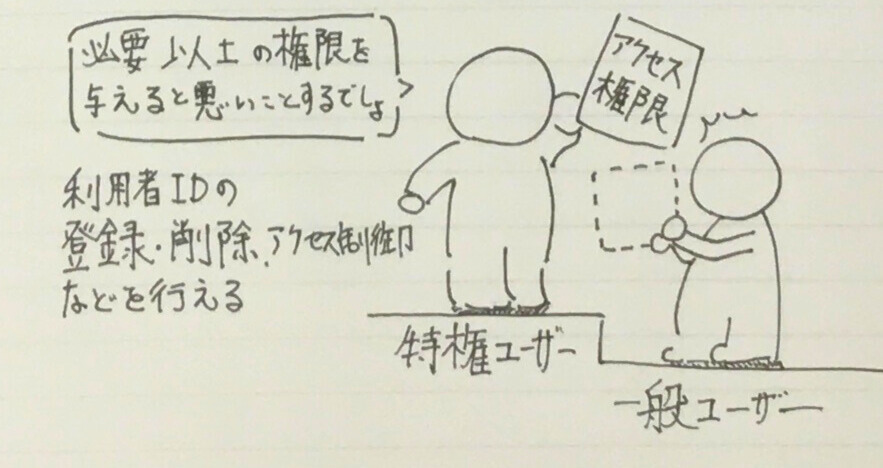 必要以上の権限を
与えると悪いことするでしょ
アクセス
権限
利用者IDの
登録・削除、アクセス制御
などを行える
特権ユーザー
一般ユーザー